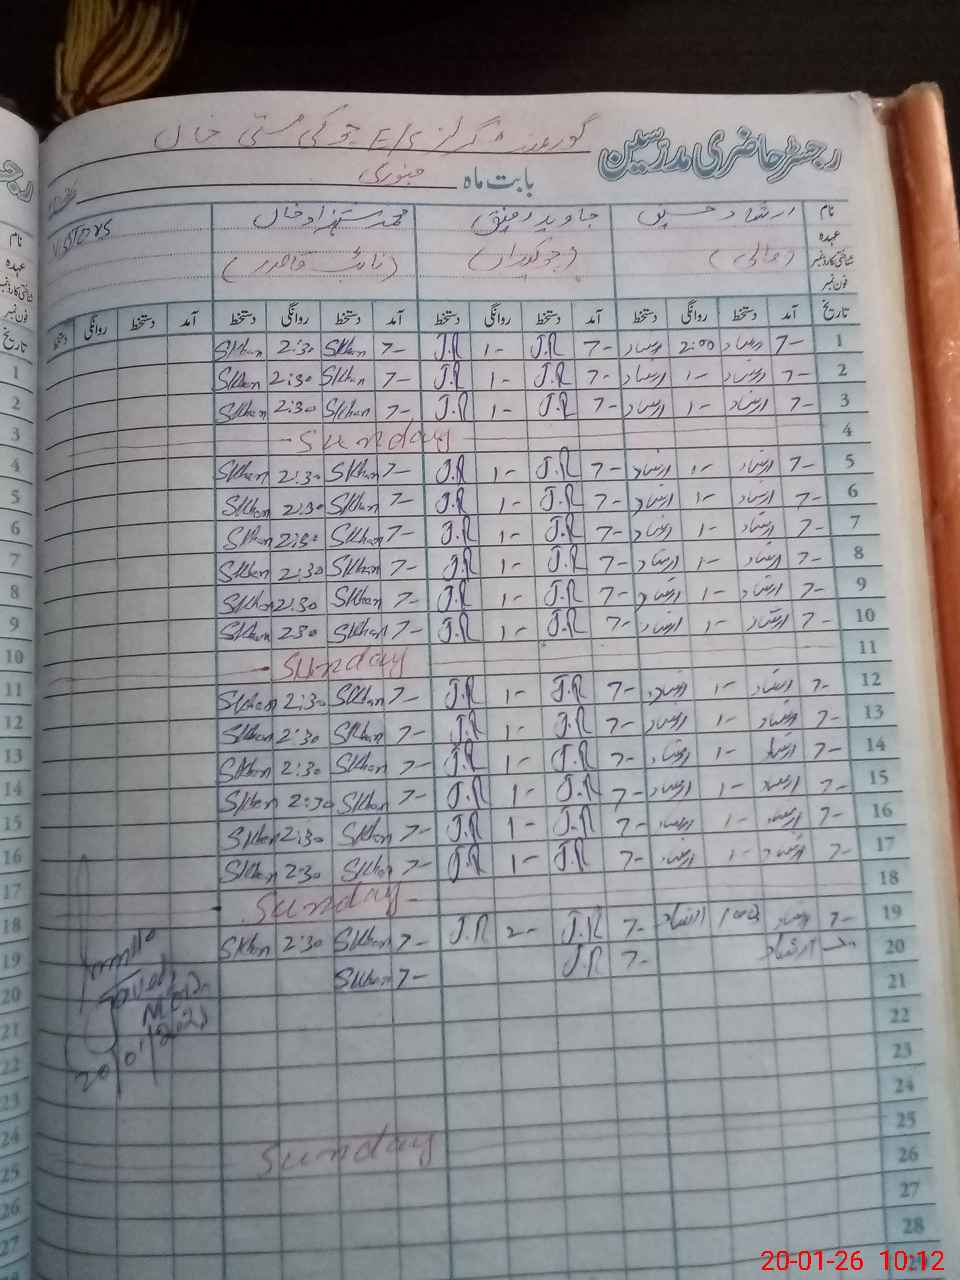 رجسٹر حاضری مدرسین گورنمنٹ گرلز E/S چوکی مستی خان
بابت ماہ جنوری
نام ارشاد حسین جاوید رفیق محمد شہزاد خان VISITORS
عہدہ (مالی) (چوکیدار) (نائب قاصد)
شناختی کارڈ نمبر
فون نمبر
تاریخ آمد دستخط روانگی دستخط آمد دستخط روانگی دستخط آمد دستخط روانگی دستخط آمد دستخط روانگی دستخط
1 7- ارشاد 2:00 ارشاد 7- J.R 1- J.R 7- SKhan 2:30 SKhan
2 7- ارشاد 1- ارشاد 7- J.R 1- J.R 7- SKhan 2:30 SKhan
3 7- ارشاد 1- ارشاد 7- J.R 1- J.R 7- SKhan 2:30 SKhan
4 - Sunday
5 7- ارشاد 1- ارشاد 7- J.R 1- J.R 7- SKhan 2:30 SKhan
6 7- ارشاد 1- ارشاد 7- J.R 1- J.R 7- SKhan 2:30 SKhan
7 7- ارشاد 1- ارشاد 7- J.R 1- J.R 7- SKhan 2:30 SKhan
8 7- ارشاد 1- ارشاد 7- J.R 1- J.R 7- SKhan 2:30 SKhan
9 7- ارشاد 1- ارشاد 7- J.R 1- J.R 7- SKhan 2:30 SKhan
10 7- ارشاد 1- ارشاد 7- J.R 1- J.R 7- SKhan 230 SKhan
11 - Sunday
12 7- ارشاد 1- ارشاد 7- J.R 1- J.R 7- SKhan 2:30 SKhan
13 7- ارشاد 1- ارشاد 7- J.R 1- J.R 7- SKhan 2:30 SKhan
14 7- ارشاد 1- ارشاد 7- J.R 1- J.R 7- SKhan 2:30 SKhan
15 7- ارشاد 1- ارشاد 7- J.R 1- J.R 7- SKhan 2:30 SKhan
16 7- ارشاد 1- ارشاد 7- J.R 1- J.R 7- SKhan 2:30 SKhan
17 7- ارشاد 1- ارشاد 7- J.R 1- J.R 7- SKhan 2:30 SKhan
18 - Sunday -
19 7- ارشاد 1:00 ارشاد 7- J.R 2- J.R 7- SKhan 2:30 SKhan
20 ارشاد 7- J.R 7- SKhan
21
22
23
24
25 Sunday
26
27
28
Javed
20/01/2021
نام
عہدہ
تاریخ
1
2
3
4
5
6
7
8
9
10
11
12
13
14
15
16
17
18
19
20
21
22
23
24
25
26
27
20-01-26 10:12